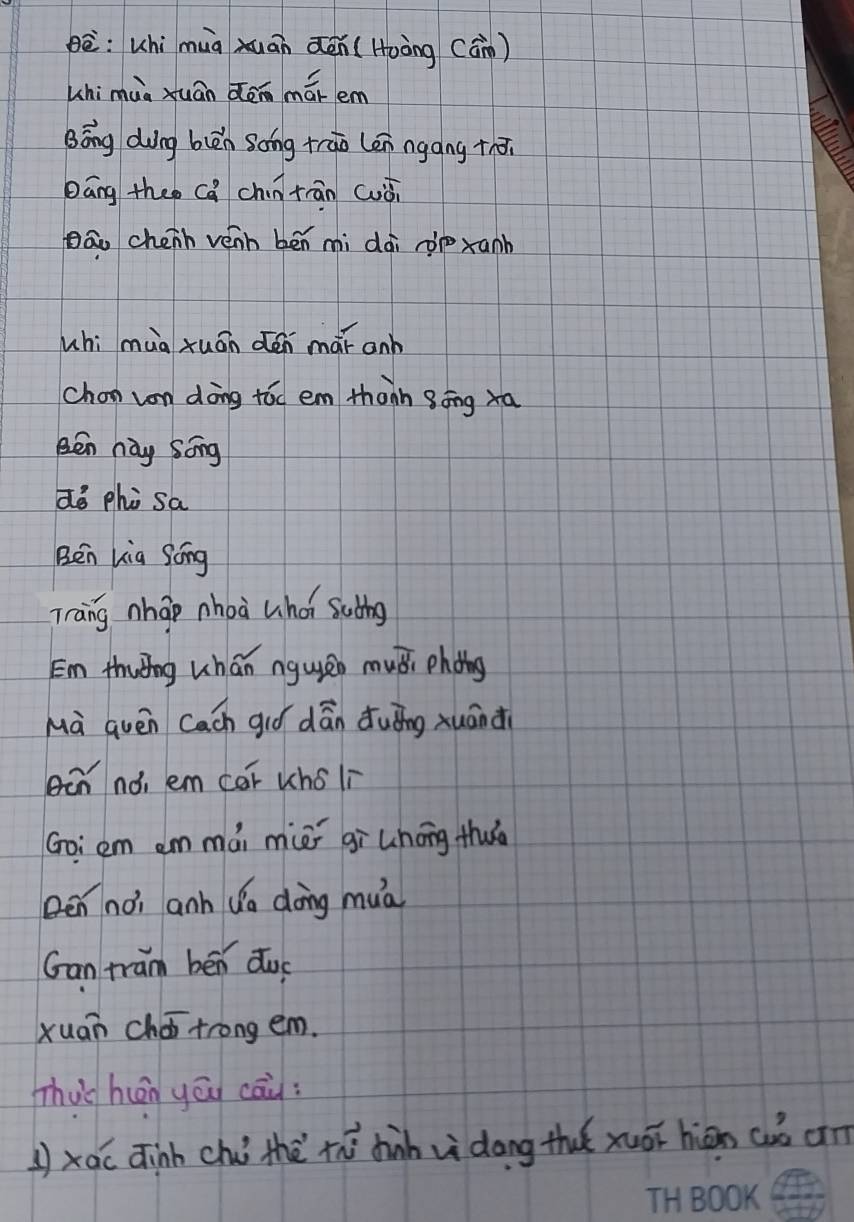 Đề: Khi mùa xuân đến (Hoàng Cầm)
Khi mùa xuân đến mắt em
Bỗng dưng biển sóng trào lên ngang trời
Đăng theo cả chín trận cười
Đảo chênh vênh bến mi dài rợp xanh
Khi mùa xuân đến mắt anh
Chon von dòng tóc em thành sông xa
Bên này sông
đỏ phù sa
Bên kia sông
Trăng nhập nhoà khói sương
Em thường khấn nguyện mười phương
Mà quên cách gió dẫn đường xuân đi
Đến nơi em cát khô lì
Gọi em em mải miết gì không thưa
Đến nơi anh vừa dòng mưa
Gạn trăm bến đục
xuân chờ trong em.
Thực hiện yêu cầu:
1) xác định chủ thể trữ tình và dạng thức xuất hiện của
TH BOOK